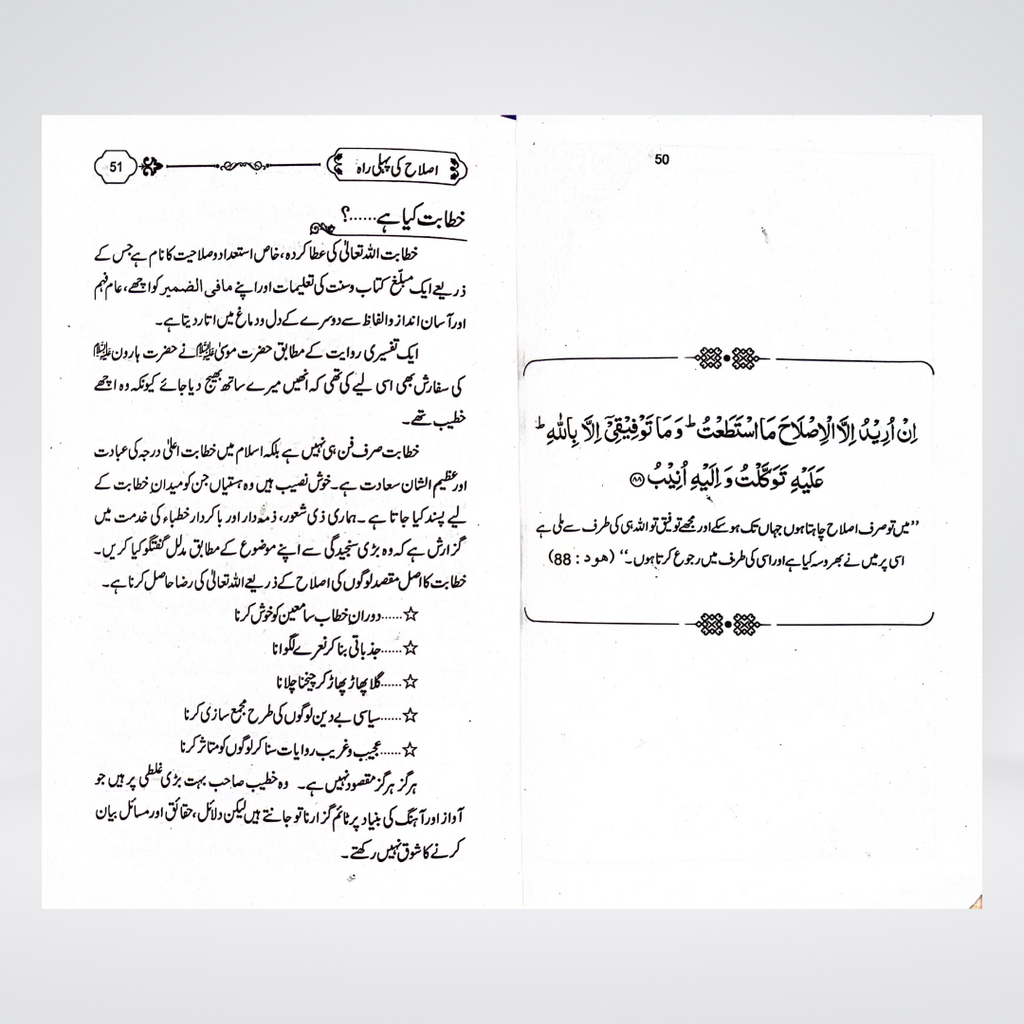 50
اِنْ اُرِیْدُ اِلَّا الْاِصْلَاحَ مَا اسْتَطَعْتُ ؕ وَ مَا تَوْفِیْقِیْۤ اِلَّا بِاللّٰهِ ؕ
عَلَیْهِ تَوَكَّلْتُ وَ اِلَیْهِ اُنِیْبُ ﴿۸۸﴾
’’میں تو صرف اصلاح چاہتا ہوں جہاں تک ہو سکے اور مجھے توفیق تو اللہ ہی کی طرف سے ملی ہے
اسی پر میں نے بھروسہ کیا ہے اور اسی کی طرف میں رجوع کرتا ہوں۔‘‘ (ھود : 88)
اصلاح کی پہلی راہ 51
خطابت کیا ہے......؟
خطابت اللہ تعالیٰ کی عطا کردہ، خاص استعداد و صلاحیت کا نام ہے جس کے
ذریعے ایک مبلّغ کتاب و سنت کی تعلیمات اور اپنے مافی الضمیر کو اچھے، عام فہم
اور آسان انداز و الفاظ سے دوسرے کے دل و دماغ میں اتار دیتا ہے۔
ایک تفسیری روایت کے مطابق حضرت موسیٰ علیہ السلام نے حضرت ہارون علیہ السلام
کی سفارش بھی اسی لیے کی تھی کہ انھیں میرے ساتھ بھیج دیا جائے کیونکہ وہ اچھے
خطیب تھے۔
خطابت صرف فن ہی نہیں ہے بلکہ اسلام میں خطابت اعلیٰ درجہ کی عبادت
اور عظیم الشان سعادت ہے۔ خوش نصیب ہیں وہ ہستیاں جن کو میدانِ خطابت کے
لیے پسند کیا جاتا ہے۔ ہماری ذی شعور، ذمہ دار اور باکردار خطباء کی خدمت میں
گزارش ہے کہ وہ بڑی سنجیدگی سے اپنے موضوع کے مطابق مدلل گفتگو کیا کریں۔
خطابت کا اصل مقصد لوگوں کی اصلاح کے ذریعے اللہ تعالیٰ کی رضا حاصل کرنا ہے۔
☆......دورانِ خطاب سامعین کو خوش کرنا
☆......جذباتی بنا کر نعرے لگوانا
☆......گلا پھاڑ پھاڑ کر چیخنا چلانا
☆......سیاسی بے دین لوگوں کی طرح مجمع سازی کرنا
☆......عجیب و غریب روایات سنا کر لوگوں کو متاثر کرنا
ہرگز ہرگز مقصود نہیں ہے۔ وہ خطیب صاحب بہت بڑی غلطی پر ہیں جو
آواز اور آہنگ کی بنیاد پر ٹائم گزارنا تو جانتے ہیں لیکن دلائل، حقائق اور مسائل بیان
کرنے کا شوق نہیں رکھتے۔